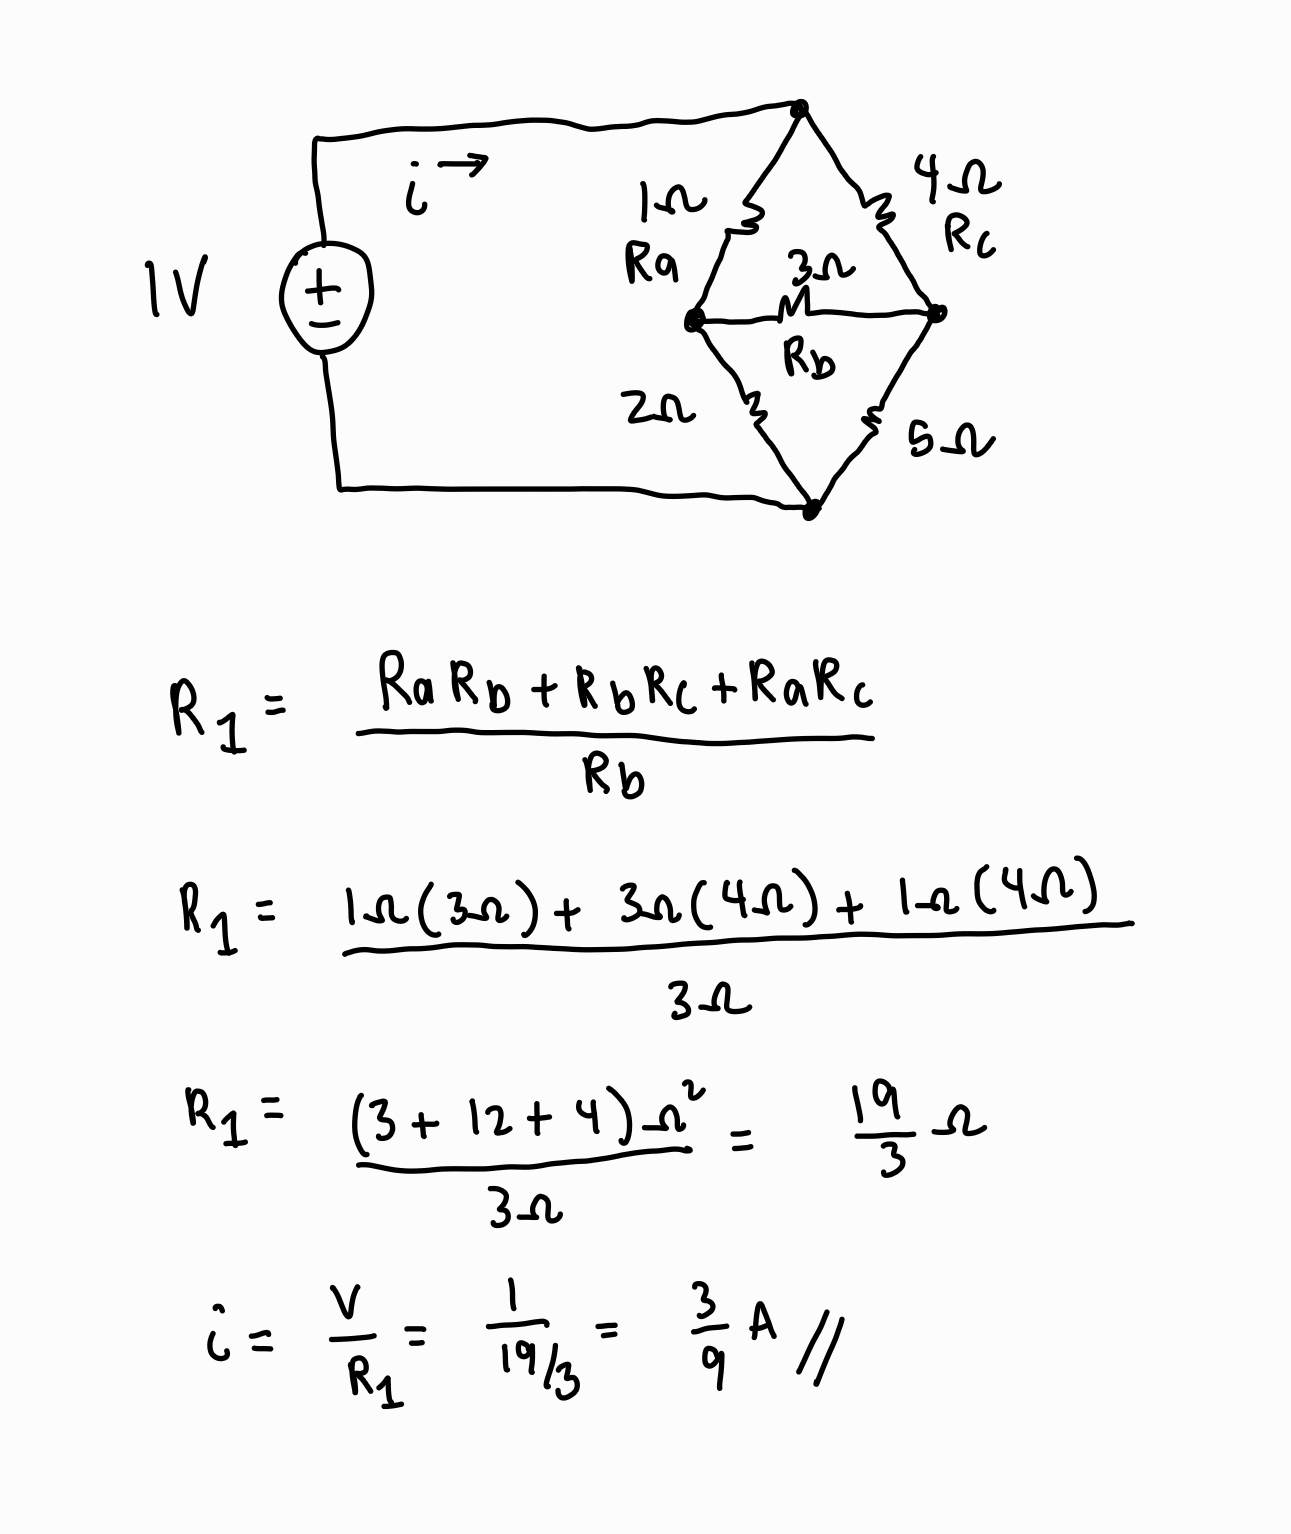 i →
1V
+
−
1Ω
Ra
4Ω
Rc
3Ω
Rb
2Ω
5Ω
R1 = (RaRb + RbRc + RaRc) / Rb
R1 = (1Ω(3Ω) + 3Ω(4Ω) + 1Ω(4Ω)) / 3Ω
R1 = (3 + 12 + 4)Ω² / 3Ω = 19/3 Ω
i = V/R1 = 1/(19/3) = 3/9 A //